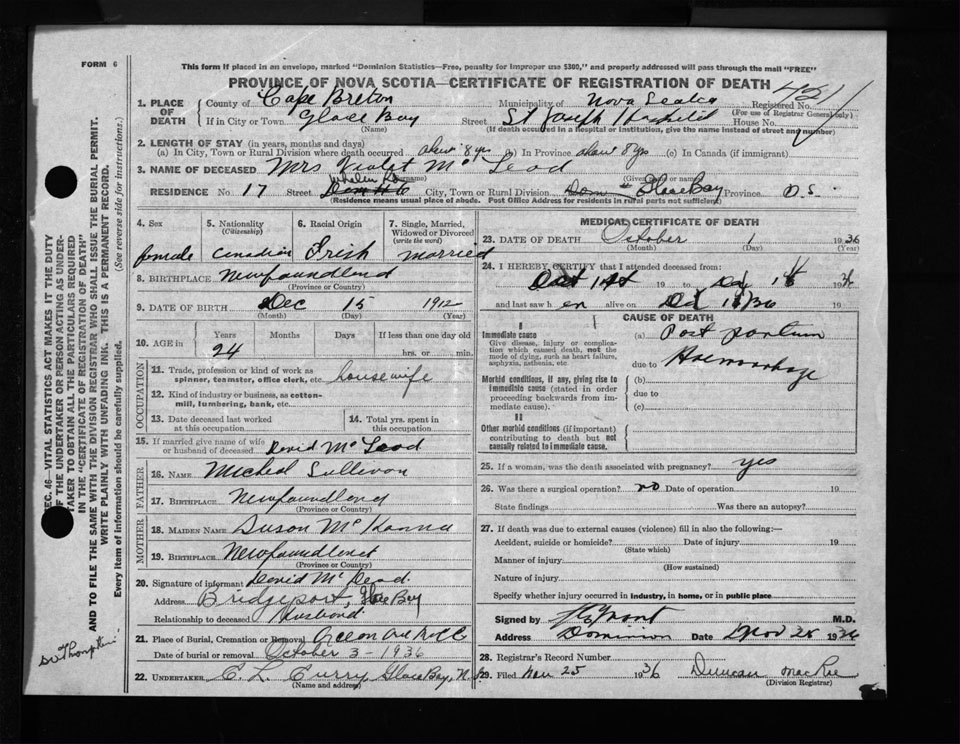 FORM 6
This form if placed in an envelope, marked "Dominion Statistics—Free, penalty for improper use $300," and properly addressed will pass through the mail "FREE"
PROVINCE OF NOVA SCOTIA—CERTIFICATE OF REGISTRATION OF DEATH
1. PLACE OF DEATH
County of Cape Breton Municipality of Nova Scotia Registered No.
(For use of Registrar General only)
If in City or Town Glace Bay Street St Joseph Hospital House No.
(Name) (If death occurred in a hospital or institution, give the name instead of street and number)
2. LENGTH OF STAY (in years, months and days)
(a) In City, Town or Rural Division where death occurred about 8 yrs (b) In Province about 8 yrs (c) In Canada (if immigrant)
3. NAME OF DECEASED Mrs Violet Mc Leod
(Surname) (Given name or names)
RESIDENCE No. 17 Street Whalen City, Town or Rural Division Dom Glace Bay Province N.S.
(Residence means usual place of abode. Post Office Address for residents in rural parts not sufficient)
4. Sex 5. Nationality (Citizenship) 6. Racial Origin 7. Single, Married, Widowed or Divorced (write the word)
female Canadian Irish married
8. BIRTHPLACE Newfoundland
(Province or Country)
9. DATE OF BIRTH Dec 15 1912
(Month) (Day) (Year)
10. AGE in Years Months Days If less than one day old
24 hrs. or min.
OCCUPATION
11. Trade, profession or kind of work as spinner, teamster, office clerk, etc. housewife
12. Kind of industry or business, as cotton-mill, lumbering, bank, etc.
13. Date deceased last worked at this occupation
14. Total yrs. spent in this occupation
15. If married give name of wife or husband of deceased David Mc Leod
FATHER
16. NAME Micheal Sullivan
17. BIRTHPLACE Newfoundland
(Province or Country)
MOTHER
18. MAIDEN NAME Susan Mc
19. BIRTHPLACE Newfoundland
(Province or Country)
20. Signature of informant David Mc Leod.
Address Bridgeport, Glace Bay
Relationship to deceased Husband
21. Place of Burial, Cremation or Removal
Date of burial or removal October 3-1936
22. UNDERTAKER C. L. Curry Glace Bay, N.S.
(Name and address)
MEDICAL CERTIFICATE OF DEATH
23. DATE OF DEATH October 1 1936
(Month) (Day) (Year)
24. I HEREBY CERTIFY that I attended deceased from:
Oct 1st 19 to Oct 1st 1936
and last saw h er alive on Oct 1st/36 19
CAUSE OF DEATH
I
Immediate cause
Give disease, injury or complication which caused death, not the mode of dying, such as heart failure, asphyxia, asthenia, etc.
(a) Post partum
due to Haemorrhage
Morbid conditions, if any, giving rise to immediate cause (stated in order proceeding backwards from immediate cause).
(b)
due to
(c)
II
Other morbid conditions (if important) contributing to death but not causally related to immediate cause.
25. If a woman, was the death associated with pregnancy? yes
26. Was there a surgical operation? no Date of operation 19
State findings Was there an autopsy?
27. If death was due to external causes (violence) fill in also the following:—
Accident, suicide or homicide? Date of injury 19
(State which)
Manner of injury
(How sustained)
Nature of injury
Specify whether injury occurred in industry, in home, or in public place
Signed by M.D.
Address Dominion Date Nov 25 1936
28. Registrar's Record Number
29. Filed Nov 25 1936 Duncan MacRae
(Division Registrar)
SEC. 46—VITAL STATISTICS ACT MAKES IT THE DUTY OF THE UNDERTAKER OR PERSON ACTING AS UNDERTAKER TO OBTAIN ALL THE PARTICULARS REQUIRED IN THE "CERTIFICATE OF REGISTRATION OF DEATH" AND TO FILE THE SAME WITH THE DIVISION REGISTRAR WHO SHALL ISSUE THE BURIAL PERMIT.
WRITE PLAINLY WITH UNFADING INK. THIS IS A PERMANENT RECORD.
Every item of information should be carefully supplied. (See reverse side for instructions.)